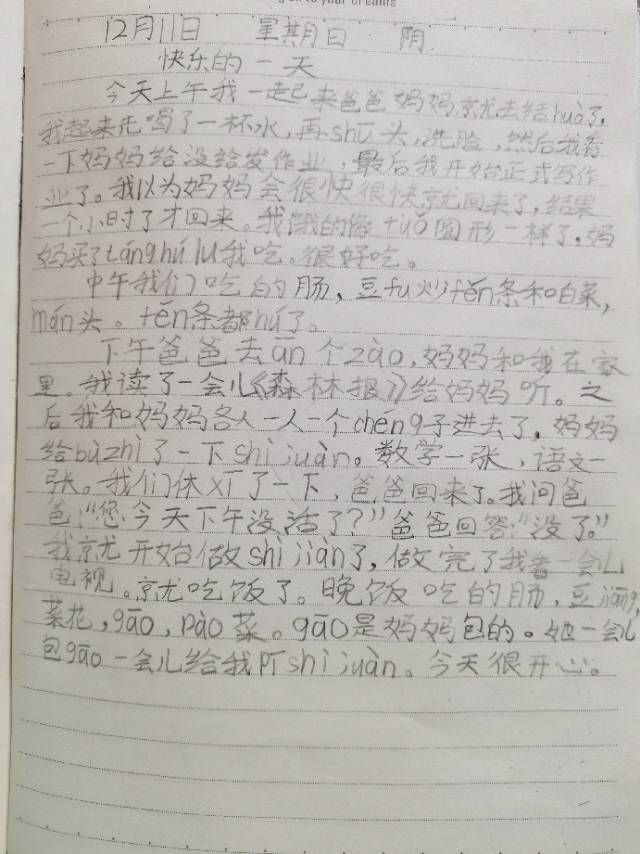 to your dreams
12月11日 星期日 阴
快乐的一天
今天上午我一起来爸爸妈妈就去结huò了,
我起来先喝了一杯水,再shū头,洗脸,然后我看
一下妈妈给没给发作业,最后我开始正式写作
业了。我以为妈妈会很快很快就回来了,结果
一个小时了才回来。我饿的像tuǒ圆形一样了,妈
妈买了táng hú lu我吃。很好吃。
中午我们吃的肠,豆fu炒fěn条和白菜,
mán头。fěn条都hú了。
下午爸爸去ān个zào,妈妈和我在家
里。我读了一会儿《森林报》给妈妈听。之
后我和妈妈各人一人一个chéng子进去了,妈妈
给bùzhì了一下shìjuàn。数学一张,语文一
张。我们休xī了一下,爸爸回来了。我问爸
爸:“您今天下午没活了?”爸爸回答:“没了。”
我就开始做shìjiàn了,做完了我看一会儿
电视。就吃饭了。晚饭吃的肠,豆jiāng,
菜花,gāo,pào菜。gāo是妈妈包的。她一会儿
包gāo一会儿给我pīshìjuàn。今天很开心。